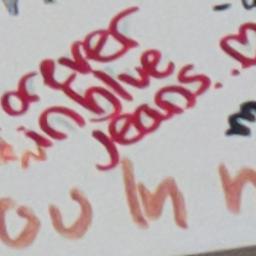 forever
in blue
jeans. ♡
ou In